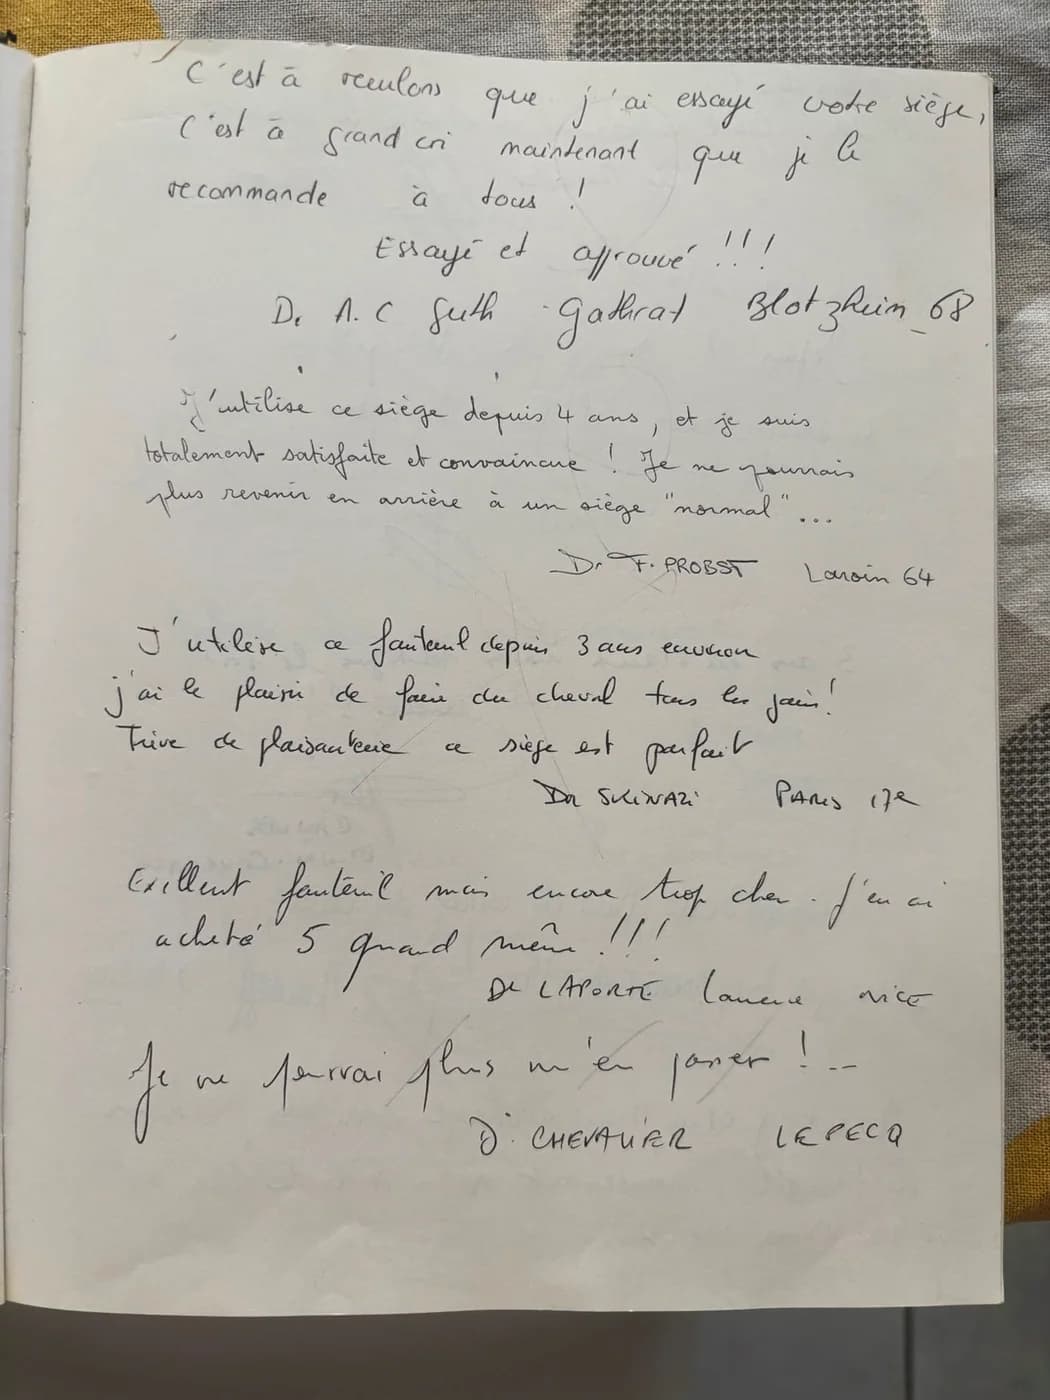 C'est à reculons que j'ai essayé votre siège,
C'est à grand cri maintenant que je le
recommande à tous !
Essayé et approuvé !!!
Dr A.C Guth Gathrat Blotzheim_68
J'utilise ce siège depuis 4 ans, et je suis
totalement satisfaite et convaincue ! Je ne pourrais
plus revenir en arrière à un siège "normal"...
Dr F. PROBST Laroin 64
J'utilise ce fauteuil depuis 3 ans environ
j'ai le plaisir de faire du cheval tous les jours!
Trève de plaisanterie ce siège est parfait
Dr SKINAZI PARIS 17e
Exellent fauteuil mais encore trop cher. J'en ai
acheté 5 quand même !!!
Dr LAPORTE NICE
Je ne pourrai plus m'en passer !..
Dr CHEVALIER LE PECQ